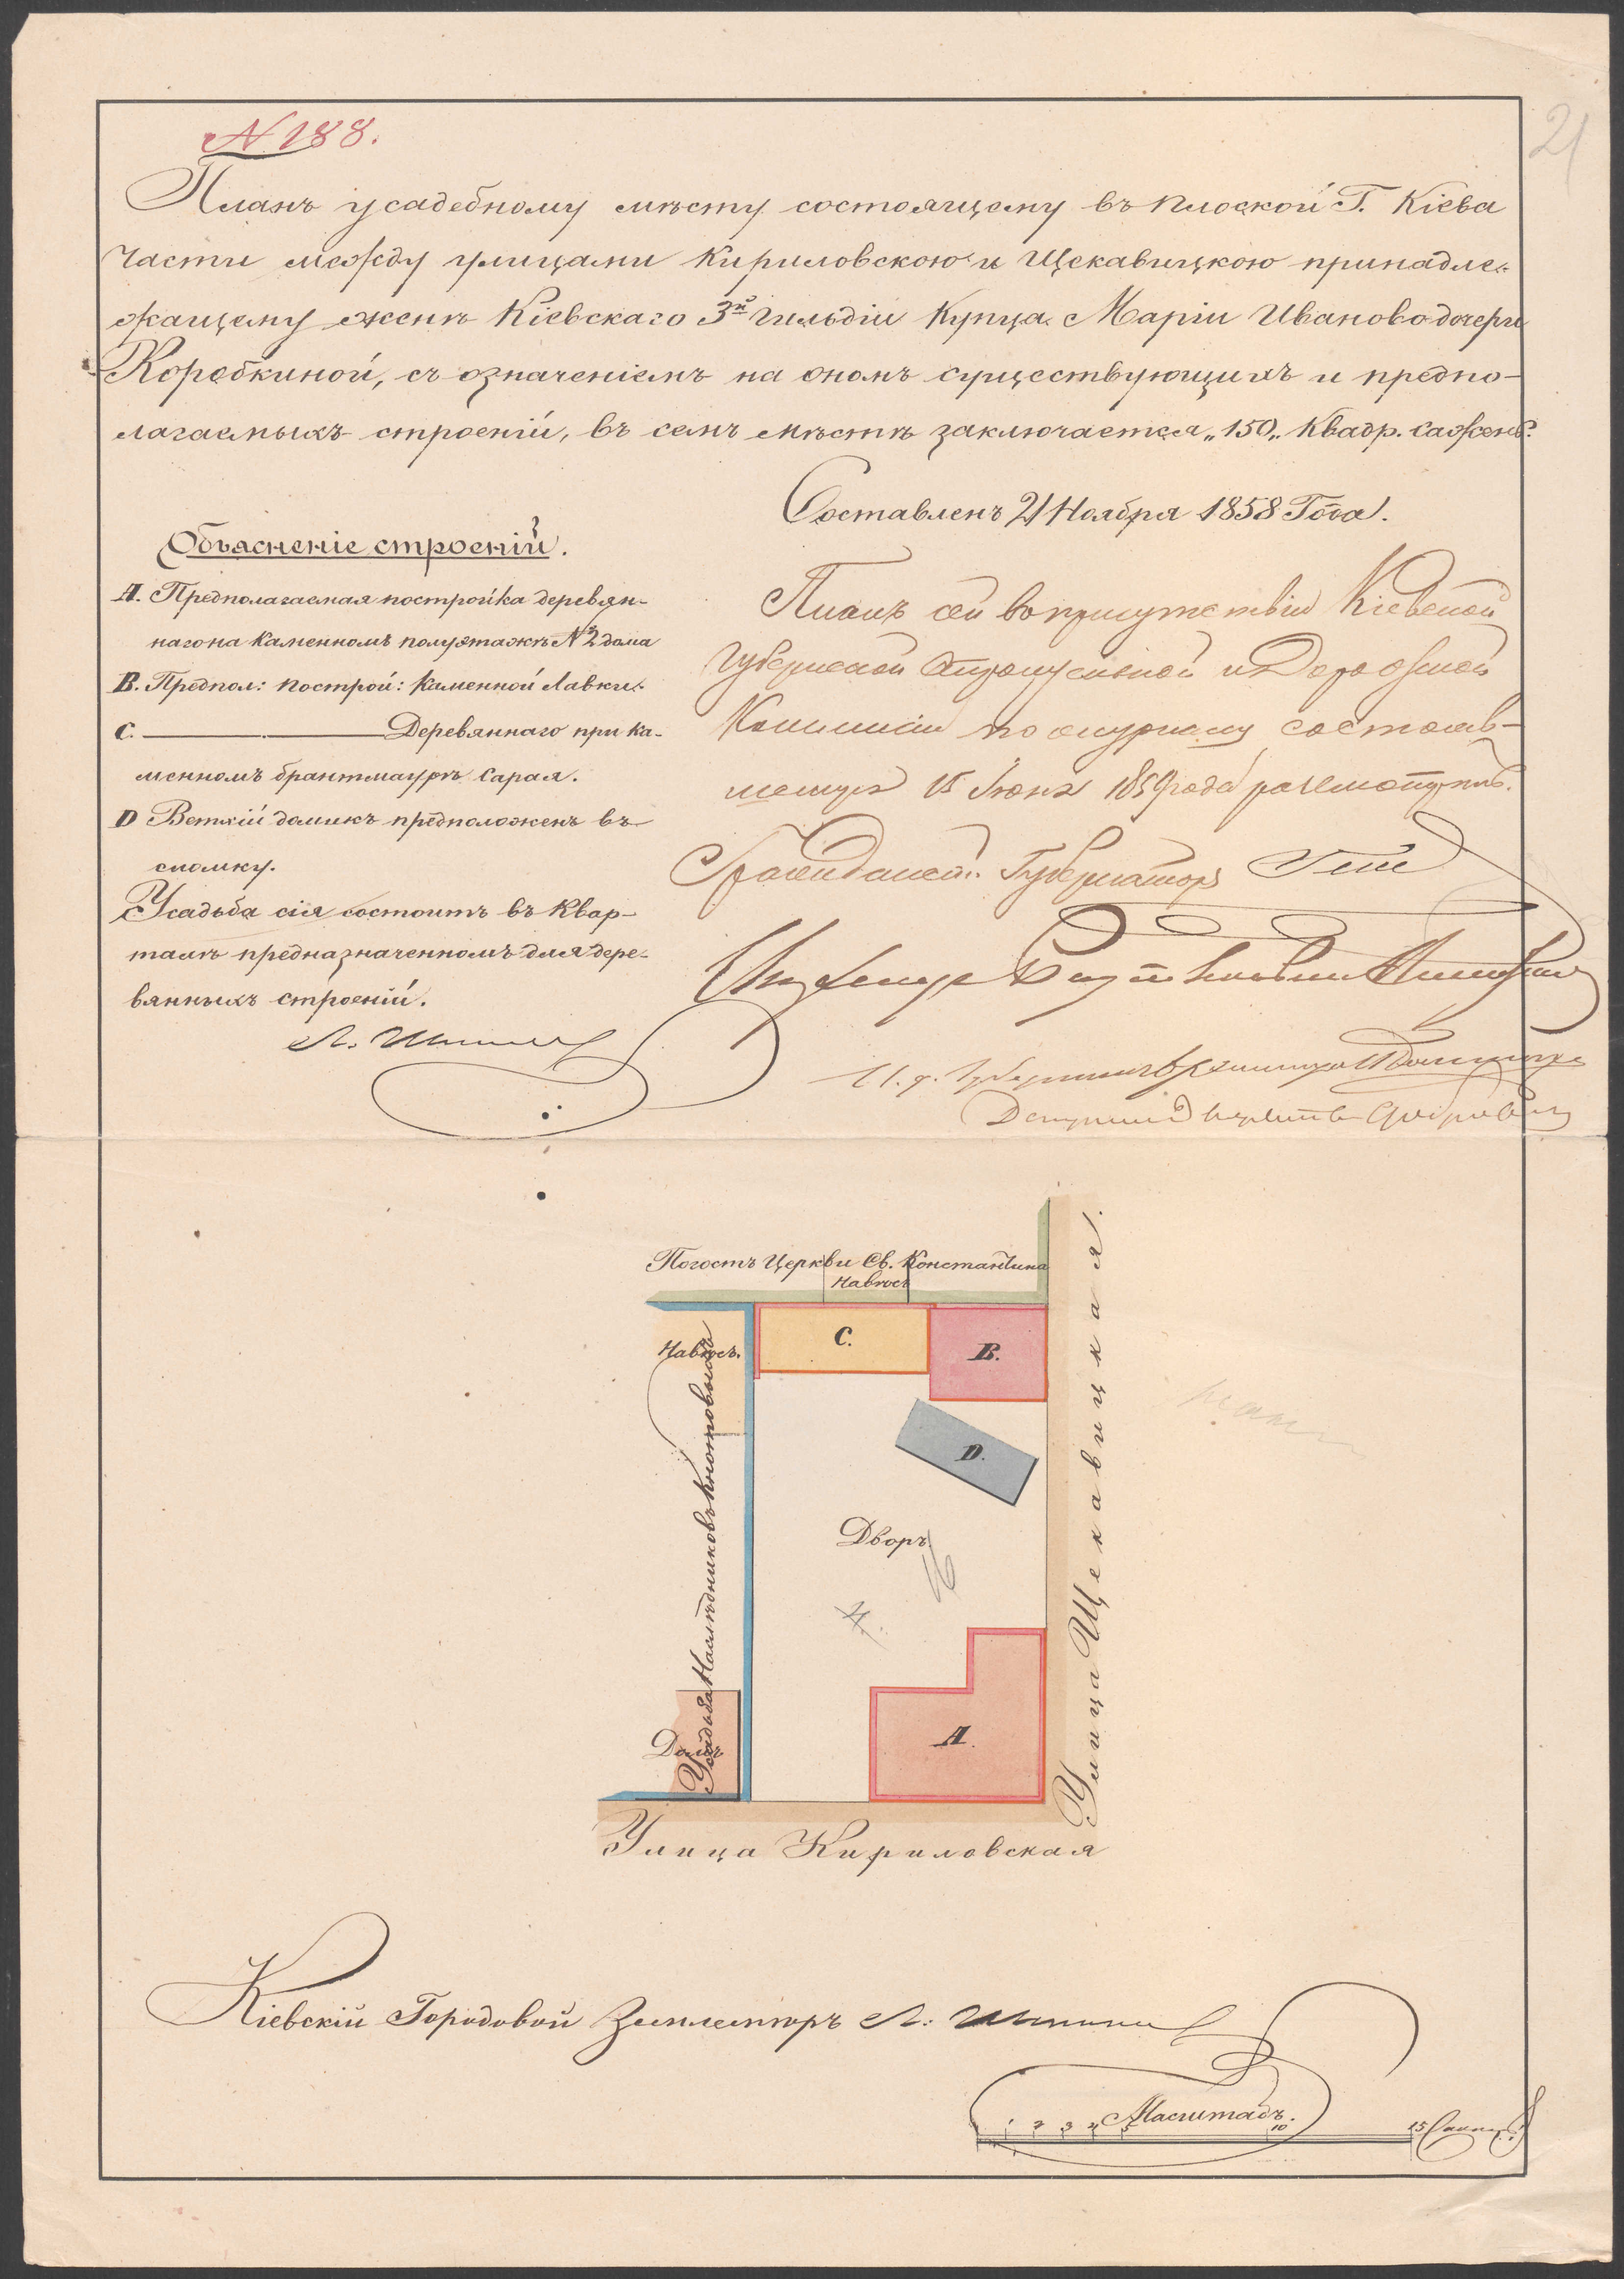 № 188.
21
Планъ усадебному мѣсту состоящему въ Плоской Г. Кіева
Части между улицами Кириловскою и Щекавицкою принадле-
жащему женѣ Кіевскаго 3й Гильдіи Купца Маріи Ивановой дочери
Коробкиной, съ означеніемъ на ономъ существующихъ и предпо-
лагаемыхъ строеній, въ семъ мѣстѣ заключается „150„ Квадр. Сажень.
Составленъ 21 Ноября 1858 Года.
Объясненіе строеній.
A. Предполагаемая постройка деревян-
наго на Каменномъ полуэтажѣ № 2 дома
B. Предпол: Построй: Каменной Лавки.
C. Деревяннаго при ка-
менномъ брантмаурѣ Сарая.
D Ветхій домикъ предположенъ въ
сломку.
Усадьба сія состоитъ въ Квар-
талѣ предназначенномъ для дере-
вянныхъ строеній.
Планъ сей въ присутствіи Кіевской
Губернской Строительной и Дорожной
Коммисіи по журналу состояв-
шемуся 15 Іюня 1859 года разсмотрѣнъ.
Гражданскій Губернаторъ Гессе
Погостъ Церкви Св. Константина
Навѣсъ
Навѣсъ.
C.
B.
D.
Дворъ
A.
Домъ
Усадьба Наслѣдниковъ
Улица Щекавицкая.
Улица Кириловская
Кіевскій Городовой Землемѣръ Л.
Масштабъ.
1 2 3 4 5 10 15 Саженъ